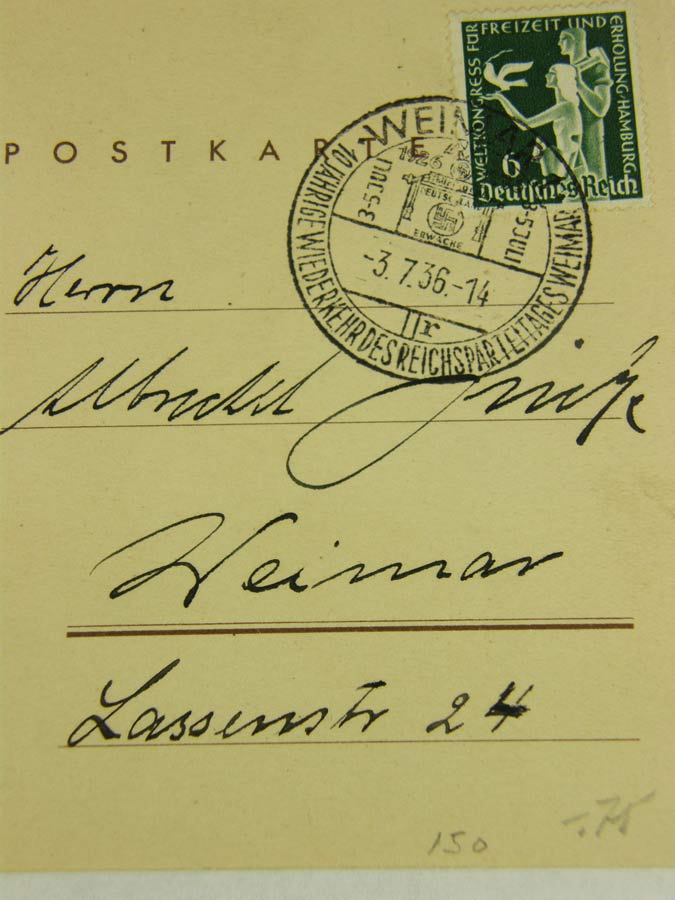 WELTKONGRESS FÜR FREIZEIT UND ERHOLUNG·HAMBURG
6
Deutsches Reich
POSTKARTE
WEIMAR
1926
3-5 JULI
3-5 JULI
DEUTSCHLAND
ERWACHE
-3.7.36.-14
r
10 JÄHRIGE WIEDERKEHR DES REICHSPARTEITAGES WEIMAR
Herrn
Albrecht
Weimar
Lassenstr 24
150
-.75